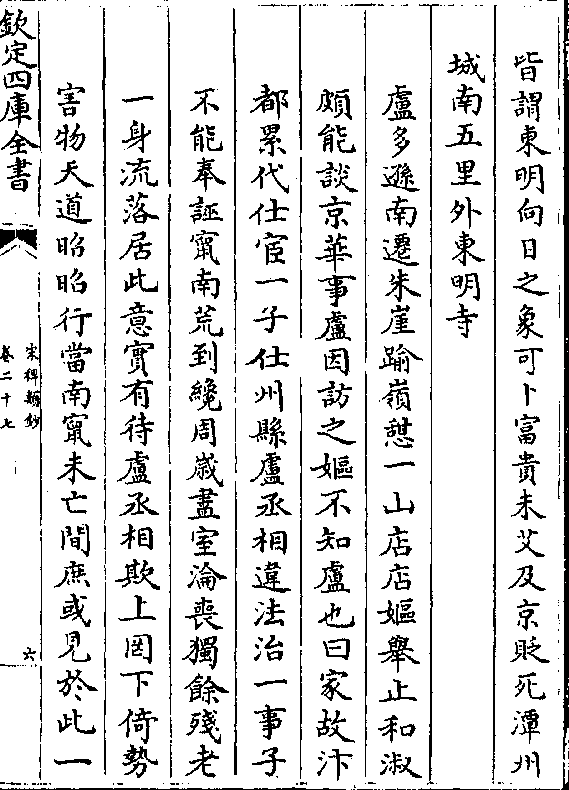 皆謂東明向日之象可卜富貴未艾及京貶死潭州
城南五里外東明寺
盧多遜南遷朱崖踰嶺憇一山店店嫗舉止和淑
頗能談京華事盧因訪之嫗不知盧也曰家故汴
都累代仕宦一子仕州縣盧丞相違法治一事子
不能奉誣竄南荒到纔周歲盡室淪喪獨餘殘老
一身流落居此意實有待盧丞相欺上罔下倚勢
害物天道昭昭行當南竄未亡間庶或見於此一
欽定四庫全書
宋稗類鈔
卷二十七
六